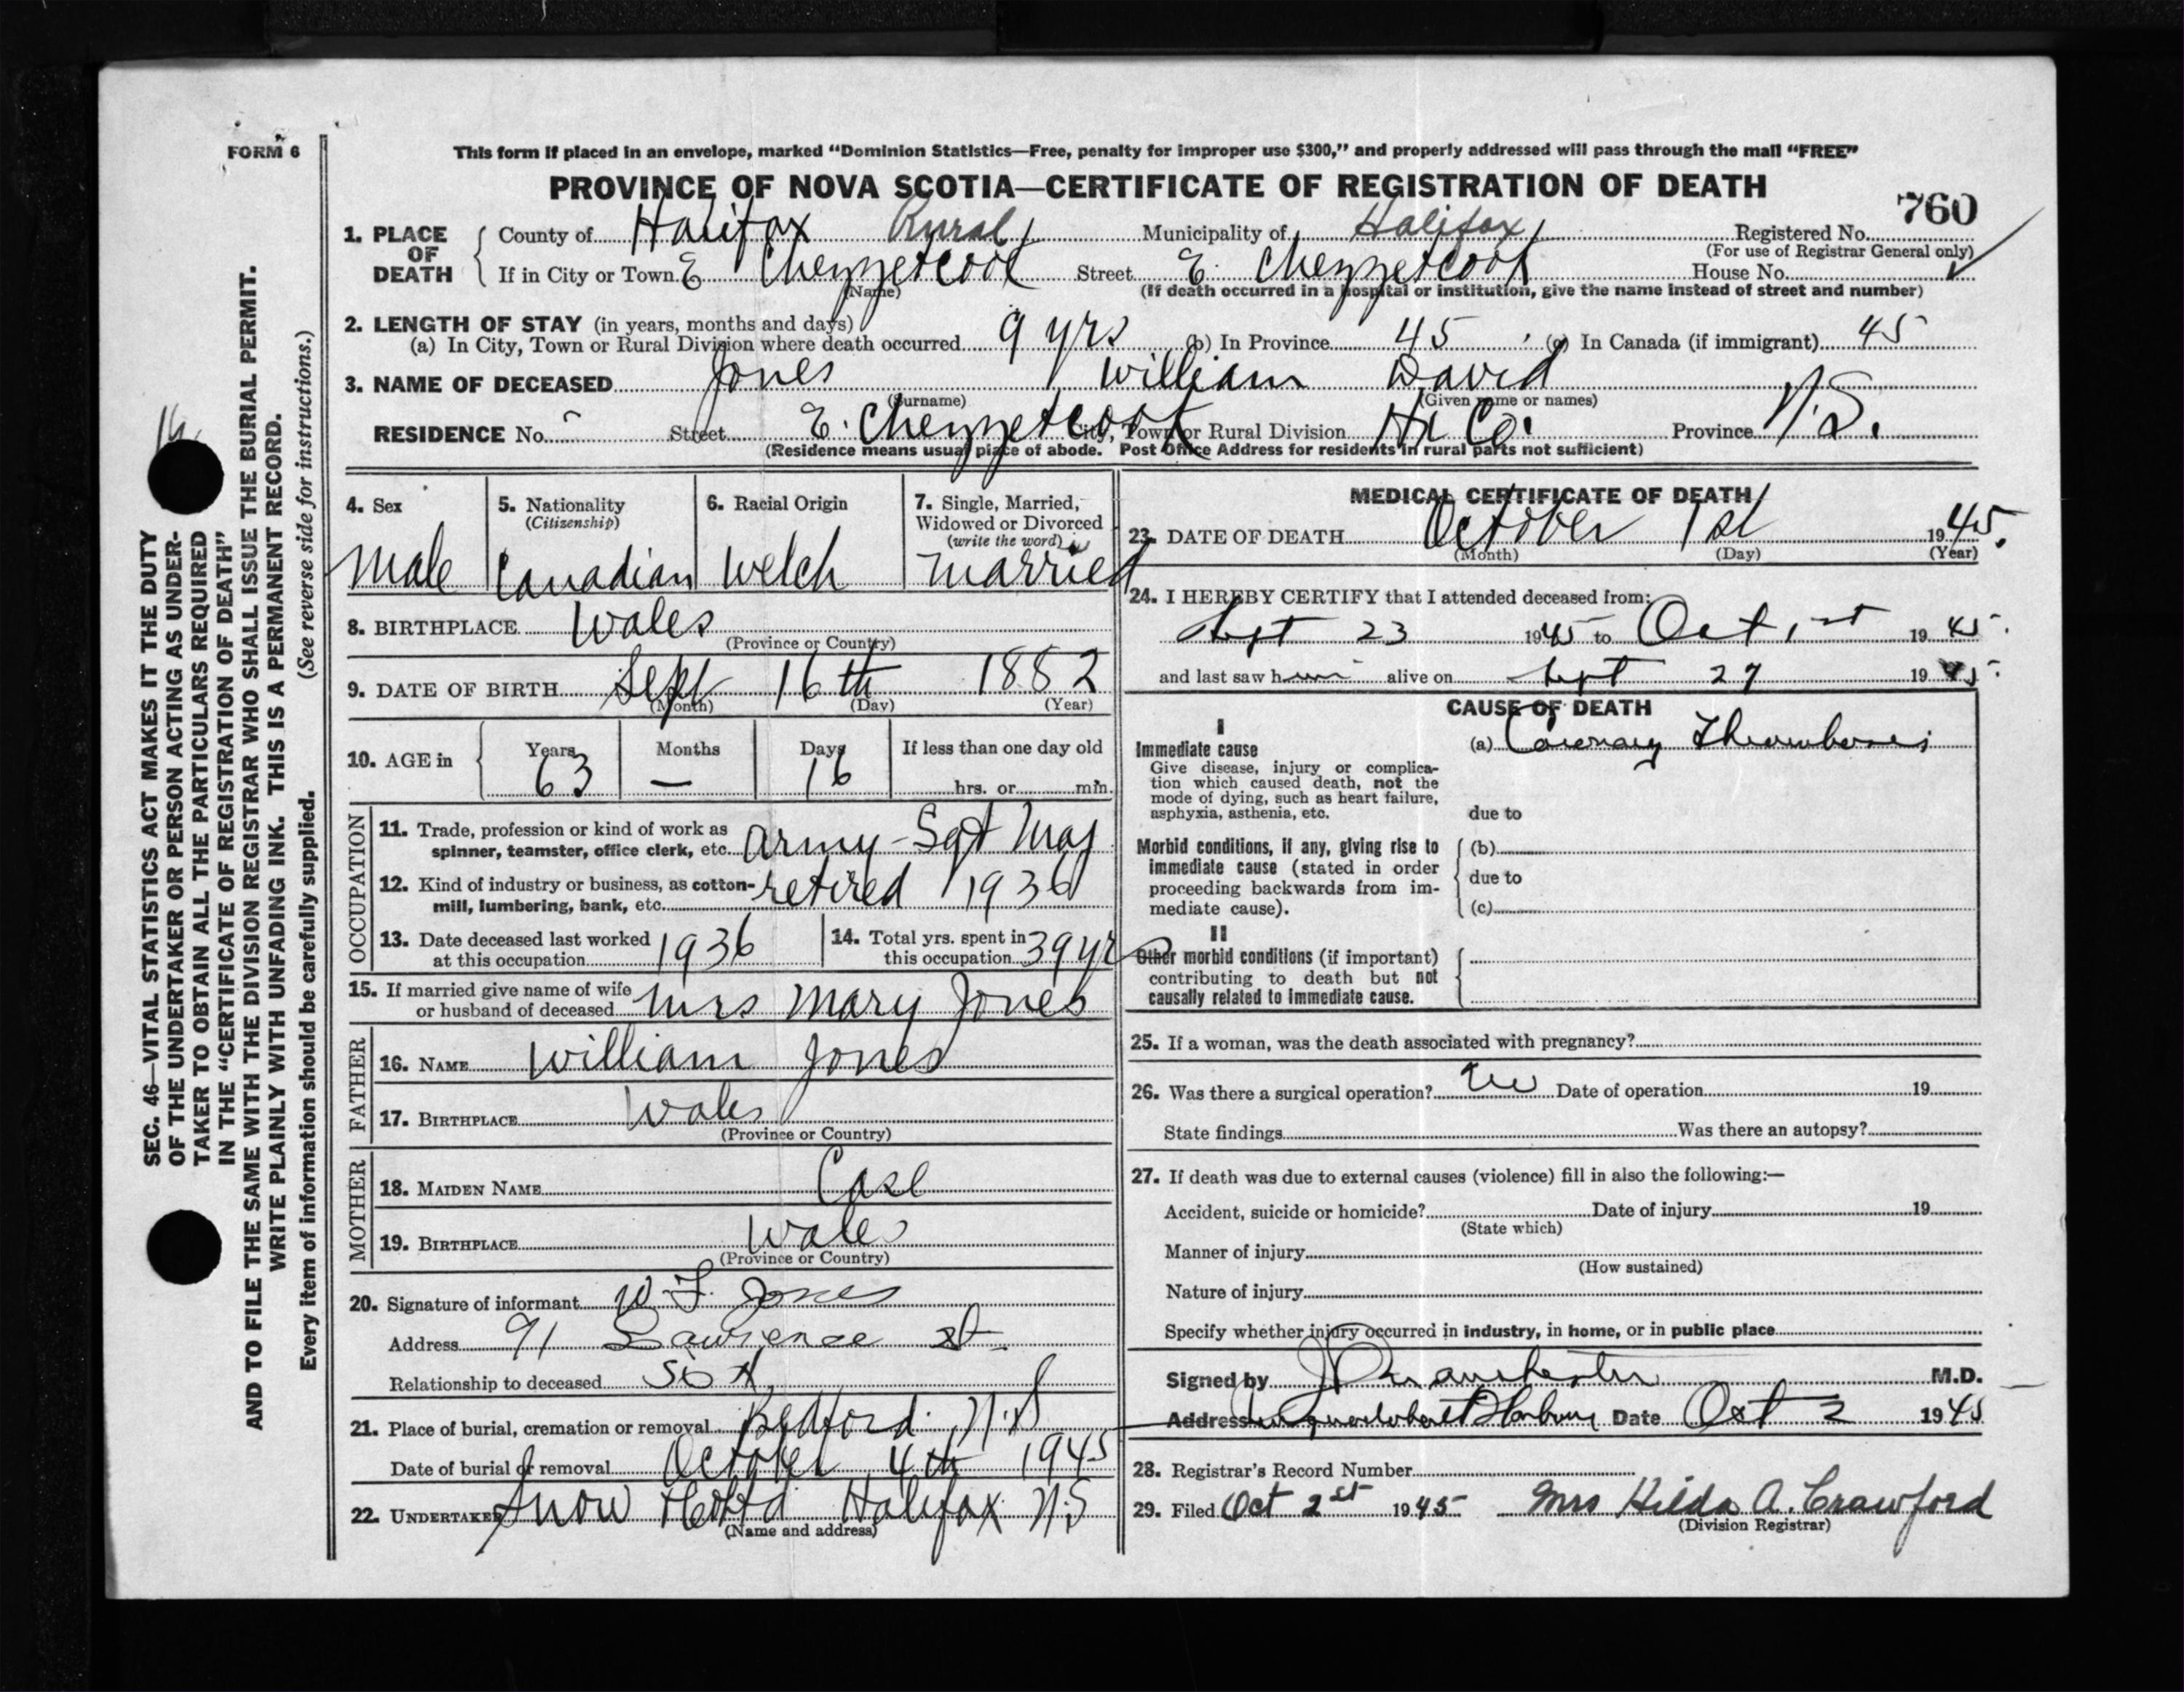 FORM 6
This form if placed in an envelope, marked “Dominion Statistics—Free, penalty for improper use $300,” and properly addressed will pass through the mail “FREE”
PROVINCE OF NOVA SCOTIA—CERTIFICATE OF REGISTRATION OF DEATH
760
1. PLACE OF DEATH
County of Halifax Rural Municipality of Halifax Registered No.
(For use of Registrar General only)
If in City or Town E Chezzetcook Street E. Chezzetcook House No.
(Name) (If death occurred in a hospital or institution, give the name instead of street and number)
2. LENGTH OF STAY (in years, months and days)
(a) In City, Town or Rural Division where death occurred 9 yrs (b) In Province 45 (c) In Canada (if immigrant) 45
3. NAME OF DECEASED Jones William David
(Surname) (Given name or names)
RESIDENCE No. - Street E. Chezzetcook City, Town or Rural Division Hx Co. Province N.S.
(Residence means usual place of abode. Post Office Address for residents in rural parts not sufficient)
4. Sex
male
5. Nationality
(Citizenship)
Canadian
6. Racial Origin
Welch
7. Single, Married,
Widowed or Divorced
(write the word)
married
8. BIRTHPLACE Wales
(Province or Country)
9. DATE OF BIRTH Sept 16th 1882
(Month) (Day) (Year)
10. AGE in
Years Months Days If less than one day old
63 — 16 hrs. or min.
OCCUPATION
11. Trade, profession or kind of work as
spinner, teamster, office clerk, etc. army - Sgt Maj
12. Kind of industry or business, as cotton-
mill, lumbering, bank, etc. retired 1936
13. Date deceased last worked
at this occupation 1936
14. Total yrs. spent in
this occupation 39 yrs
15. If married give name of wife
or husband of deceased Mrs Mary Jones
FATHER
16. NAME William Jones
17. BIRTHPLACE Wales
(Province or Country)
MOTHER
18. MAIDEN NAME
19. BIRTHPLACE Wales
(Province or Country)
20. Signature of informant W. F. Jones
Address 91 Lawrence st
Relationship to deceased
21. Place of burial, cremation or removal Bedford N.S
Date of burial or removal October 4th 1945
22. UNDERTAKER Snow Halifax N.S
(Name and address)
MEDICAL CERTIFICATE OF DEATH
23. DATE OF DEATH October 1st 1945.
(Month) (Day) (Year)
24. I HEREBY CERTIFY that I attended deceased from:
Sept 23 1945 to Oct 1st 1945.
and last saw him alive on Sept 27 1945.
CAUSE OF DEATH
I
Immediate cause
Give disease, injury or complica-
tion which caused death, not the
mode of dying, such as heart failure,
asphyxia, asthenia, etc.
(a) Coronary Thrombosis
due to
Morbid conditions, if any, giving rise to
immediate cause (stated in order
proceeding backwards from im-
mediate cause).
(b)
due to
(c)
II
Other morbid conditions (if important)
contributing to death but not
causally related to immediate cause.
25. If a woman, was the death associated with pregnancy?
26. Was there a surgical operation? no Date of operation 19
State findings Was there an autopsy?
27. If death was due to external causes (violence) fill in also the following:—
Accident, suicide or homicide? Date of injury 19
(State which)
Manner of injury
(How sustained)
Nature of injury
Specify whether injury occurred in industry, in home, or in public place
Signed by M.D.
Address Musquodoboit Harbour Date Oct 2 1945
28. Registrar's Record Number
29. Filed Oct 2st 1945- Mrs Hilda A. Crawford
(Division Registrar)
SEC. 46—VITAL STATISTICS ACT MAKES IT THE DUTY
OF THE UNDERTAKER OR PERSON ACTING AS UNDER-
TAKER TO OBTAIN ALL THE PARTICULARS REQUIRED
IN THE “CERTIFICATE OF REGISTRATION OF DEATH”
AND TO FILE THE SAME WITH THE DIVISION REGISTRAR WHO SHALL ISSUE THE BURIAL PERMIT.
WRITE PLAINLY WITH UNFADING INK. THIS IS A PERMANENT RECORD.
Every item of information should be carefully supplied. (See reverse side for instructions.)